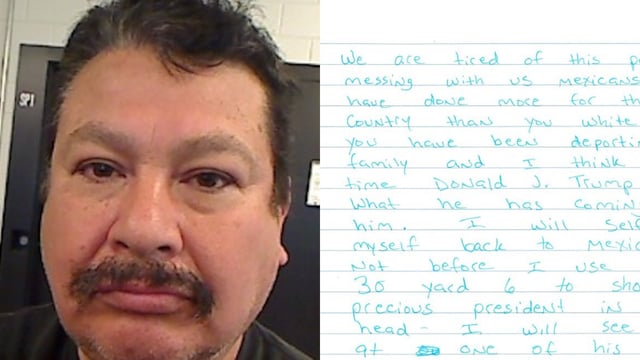 SP1
We are tired of this
messing with us mexicans
have done more for th
Country than you white
you have been deportin
family and I think
time Donald J. Trump
What he has Comin
him. I will Self
myself back to Mexic
Not before I use
30 yard 6 to sho
precious president in
head - I will see
at one of his